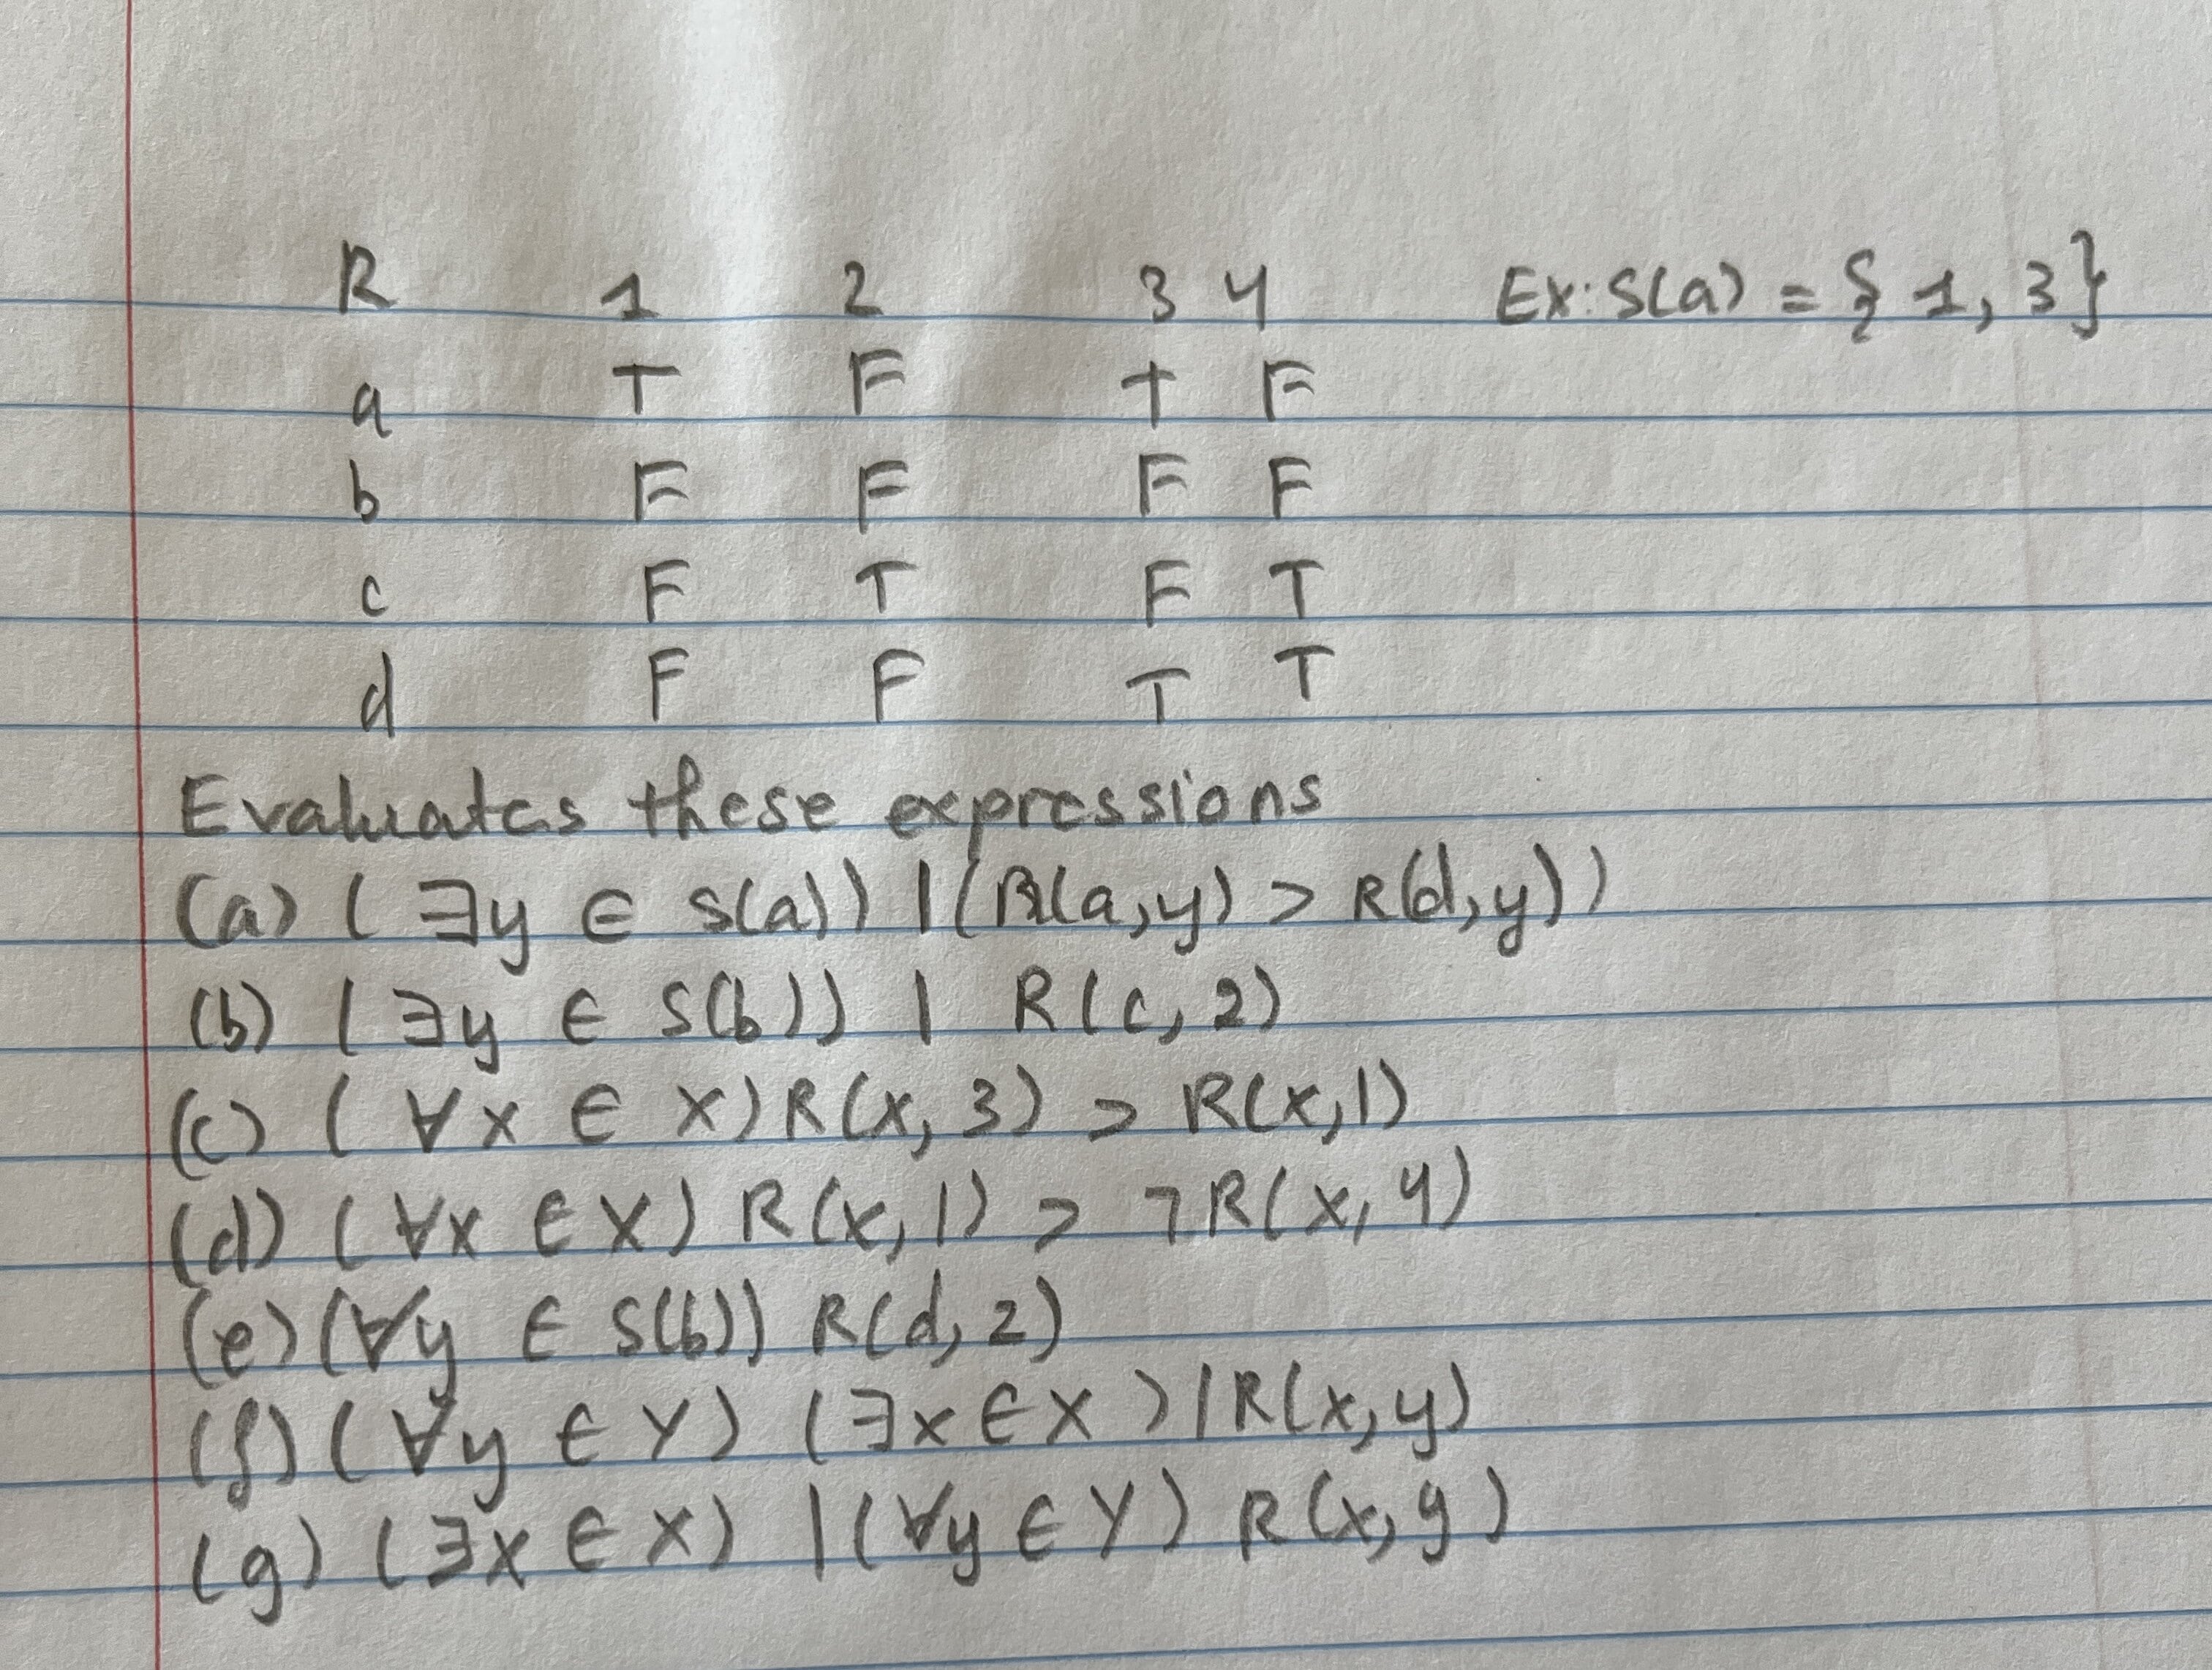 R 1 2 3 4 Ex: S(a) = { 1, 3}
a T F T F
b F F F F
c F T F T
d F F T T
Evaluates these expressions
(a) ( ∃y ∈ S(a)) | (R(a,y) > R(d,y))
(b) ( ∃y ∈ S(b)) | R(c, 2)
(c) ( ∀x ∈ X) R(x, 3) > R(x,1)
(d) ( ∀x ∈ X) R(x, 1) > ¬R(x, 4)
(e) (∀y ∈ S(b)) R(d, 2)
(f) ( ∀y ∈ Y) (∃x ∈ X ) | R(x, y)
(g) (∃x ∈ X) | (∀y ∈ Y) R(x, y)